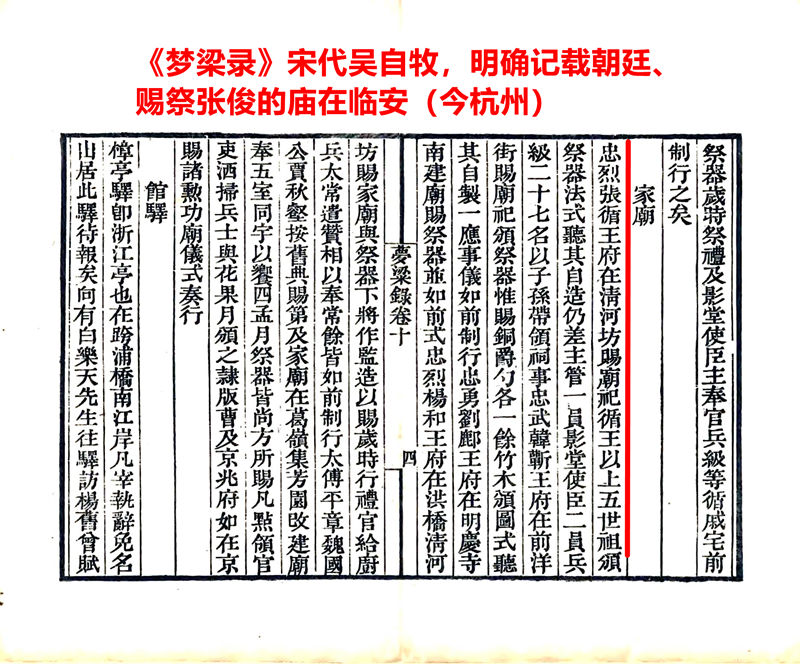 《梦梁录》宋代吴自牧，明确记载朝廷、
赐祭张俊的庙在临安（今杭州）
祭器歲時祭禮及影堂使臣主奉官兵級等循戚宅前
制行之矣
家廟
忠烈張循王府在清河坊賜廟祀循王以上五世祖頒
祭器法式聽其自造仍差主管一員影堂使臣二員兵
級二十七名以子孫帶領祠事忠武韓蘄王府在前洋
街賜廟祀頒祭器惟賜銅爵勺各一餘竹木頒圖式聽
其自製一應事儀如前制行忠勇劉鄜王府在明慶寺
南建廟賜祭器並如前式忠烈楊和王府在洪橋清河
夢粱錄卷十
四
坊賜家廟與祭器下將作監造以賜歲時行禮官給廚
兵太常遣贊相以奉常餘皆如前制行太傅平章魏國
公賈秋壑按舊典賜第及家廟在葛嶺集芳園改建廟
奉五室同宇以饗四孟月祭器皆尚方所賜凡點領官
吏洒掃兵士與花果月頒之隸版曹及京兆府如在京
賜諸勲功廟儀式奏行
館驛
樟亭驛卽浙江亭也在跨浦橋南江岸凡宰執辭免名
山居此驛待報矣向有白樂天先生往驛訪楊舊曾賦